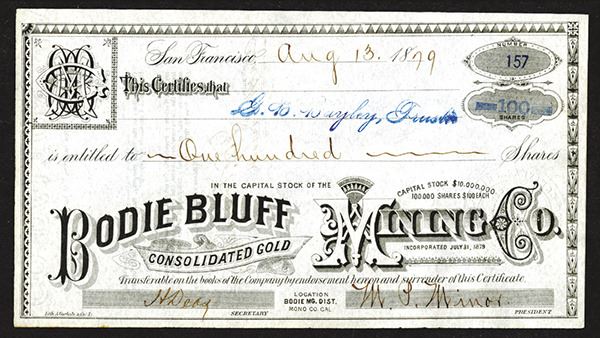 San Francisco, Aug 13. 1879
NUMBER
157
This Certifies that
G. B. Bayley, Trustee
100
SHARES
is entitled to One hundred Shares
IN THE CAPITAL STOCK OF THE
CAPITAL STOCK $10,000,000.
100,000 SHARES $100 EACH
BODIE BLUFF
CONSOLIDATED GOLD
MINING CO.
INCORPORATED JULY 31, 1878
Transferable on the books of the Company by endorsement hereon and surrender of this Certificate.
LOCATION
BODIE MG. DIST.
MONO CO. CAL.
SECRETARY
PRESIDENT